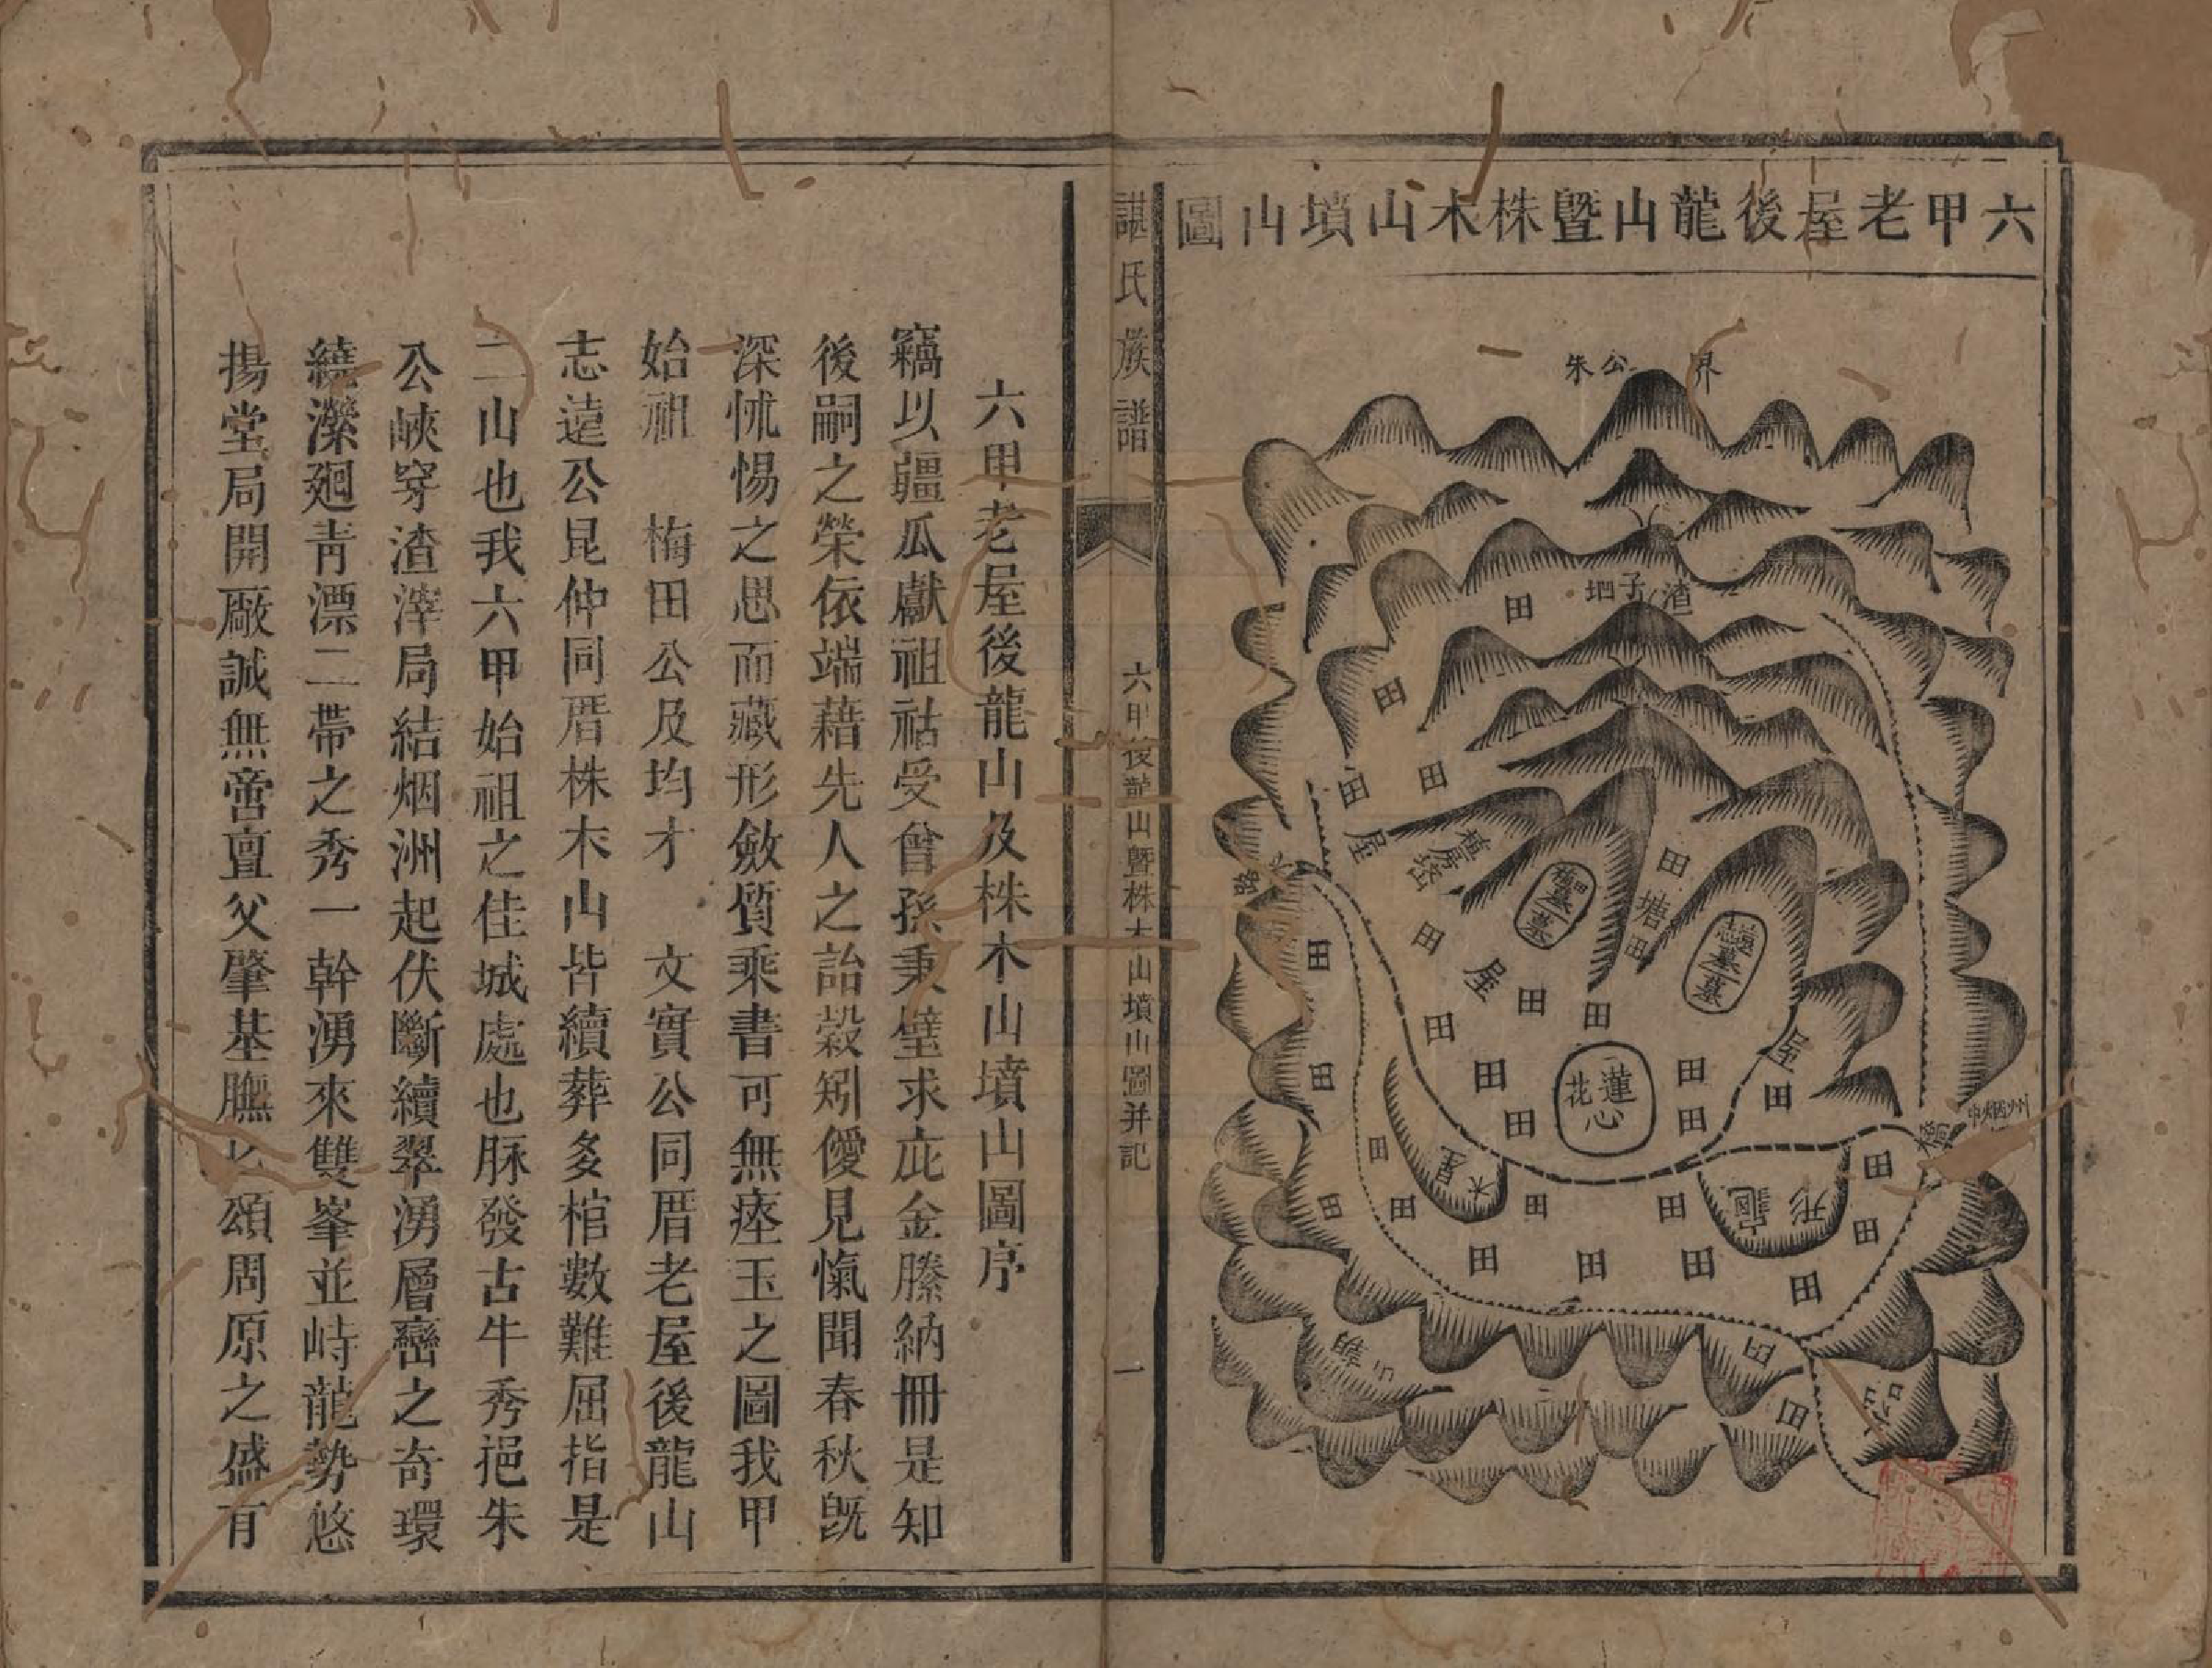 六甲老屋後龍山曁株木山墳山圖
界
朱公
渣子坦
田
田
田
田
屋
田
塘
田
田
屋
田
田
田
屋
田
蓮花心
橋
木星
龜形
諶氏族譜
六甲後龍山曁株木山墳山圖并記
一
六甲老屋後龍山及株木山墳山圖序
竊以疆瓜獻祖祜受曾孫秉璧求庇金縢納冊是知
後嗣之榮依端藉先人之詒穀矧僾見愾聞春秋旣
深怵惕之思而藏形斂質乘書可無瘞玉之圖我甲
始祖　梅田公及均才　文實公同厝老屋後龍山
志遠公昆仲同厝株木山皆續葬多棺數難屈指是
二山也我六甲始祖之佳城處也脉發古牛秀挹朱
公峽穿渣滓局結烟洲起伏斷續翠湧層巒之奇環
繞瀠廻青漂二帶之秀一幹湧來雙峯並峙龍勢悠
揚堂局開厰誠無啻亶父肇基膴 頌周原之盛有